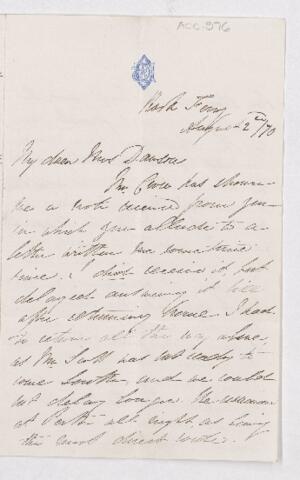 ACC. 976
August 2nd/70
My dear Mrs Dawson
My has shown
me a note received from you
in which you allude to a
letter written me sometime
since. I did receive it but
delayed answering it till
after returning home. I had
to return all the way alone
as Mr Scott was not ready to
come South, and we could
not delay longer. He remained
at all night as being
the most direct route.